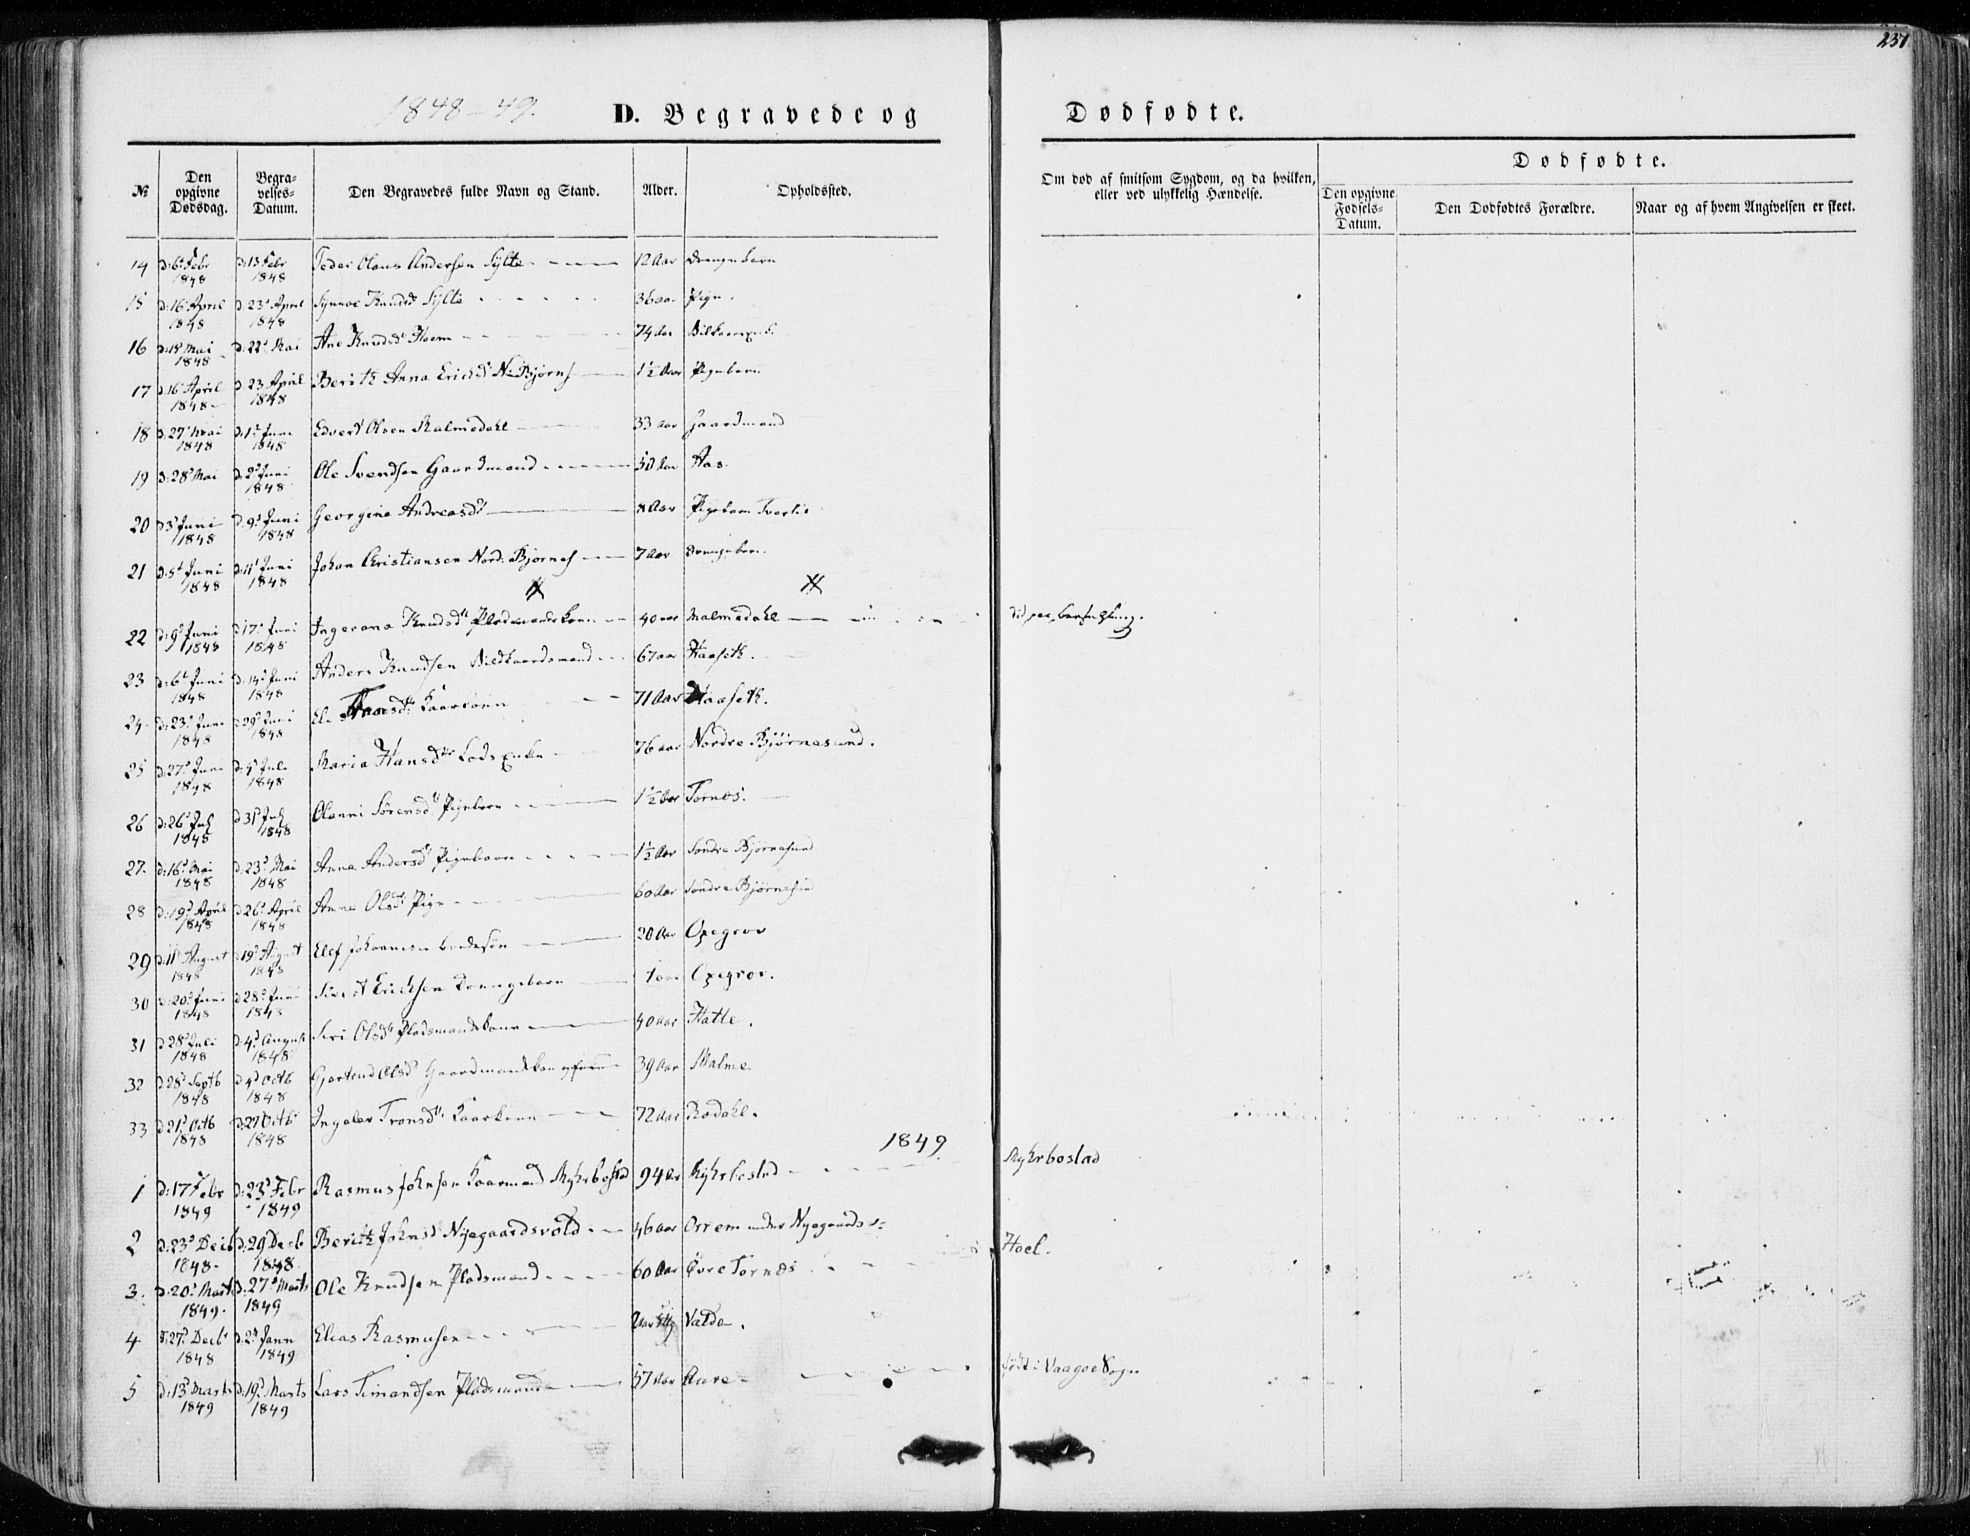 237
1848-49.
D. Begravede og Dødfødte.
№
Den opgivne Dødsdag.
Begravelses-Datum.
Den Begravedes fulde Navn og Stand.
Alder.
Opholdssted.
Om død af smitsom Sygdom, og da hvilken, eller ved ulykkelig Hændelse.
Dødfødte.
Den opgivne Fødsels-Datum.
Den Dødfødtes Forældre.
Naar og af hvem Angivelsen er skeet.
14 d: 6t Febr 1848 d: 13 Febr 1848 Peder Olaus Andersen Sylte 12 Aar Drengebarn
15 d: 16 April 1848 d. 23d April 1848 Synnøe Knudsd Sylte 36 aar Pige.
16 Mai 1848 d: 22d Mai Ane Knudsd Hoem 74 Aar
17 d. 16 April 1848 d 23 April 1848 Berith Anna Ericksd N. Bjørns 1½ Aar Pigebarn
18 d. 27d Mai 1848 d: 1t Juni 1848 Edvert Olsen Malmedahl 33 aar Gaardmand
19 d. 28d Mai d: 2d Juni 1848 Ole Svendsen Gaardmand 50 Aar Aas
20 d 3d Juni 1848 d. 9d Juni 1848 Georgine Andreasdr 8 Aar Pigebarn Tverlie
21 d: 5t Juni 1848 d: 11t Juni 1848 Johan Christiansen Nord: Bjørnes 7 Aar Drengebarn.
22 d: 9d Juni 1848 d 17d Juni 1848 Ingerana Knudsdr Pladsmandskone 40 aar Malmedahl
23 d: 6t Juni 1848 d: 14d Juni 1848 Anders Knudsen 67 aar Haaseth.
24 d: 23d Juni 1848 d 29d Juni 1848 Kaarkone 71 Aar Haaseth.
25 d: 27d Juni 1848 d: 4d Juli 1848 Maria Hansdtr Lods Enke 76 aar Nordre Bjørnesund.
26 d: 26d Juli 1848 d 31t Juli 1848 Olanni Sørensdr Pigebarn 1½ Aar Tornes.
27. d: 16d Mai 1848 d. 23d Mai 1848 Anne Andersdr Pigebarn 1½ Aar Søndre Bjørnesund
28 d: 19d April 1848 d 26d April 1848 Anne Olsdr Pige 60 Aar Søndre Bjørnesund
29 d: 11t August 1848 19d August 1848 Elef Johannesen 20 Aar Opegrov
30 d: 20d Juni 1848 d 28d Juni 1848 Sivert Ericksen 1 aar Opegrov.
31 d 28d Juli 1848 d: 4d August 1848 Siri Olsdr Pladsmandskone 40 Aar Hatle.
32 d 28d Septb 1848 d 4d Octb 1848 Gjertrud Olsd Gaardmandskone 39 Aar Malme.
33 d 21d Octb 1848 d. 27 Octb 1848 Ingebor Tronsdr Kaarkone 72 Aar Rødahl.
1849
1 d: 17 Febr 1849 d: 23d Febr 1849 Rasmus Johnsen Kaarmand Myhrbostad 94 Ar Myhrbostad Myhrbostad
2 d: 23d Decb 1848 d: 29 Decb 1848 Berith Johnsd Nyegaardsvold 46 aar Orrem under Nyegaards
Hoel.
3. d: 20d Marts 1849. d. 27d Marts 1849 Ole Knudsen Pladsmand 60 Aar Øvre Tornes
4 d: 27d Decb 1848 d. 2d Jann 1849 Elias Rasmusen Valde.
5 d: 13d Marts 1849 d. 19d Marts 1849 Lars Simandsen Pladsmand 57 Aar Aure
født i Vaagøe Sogn